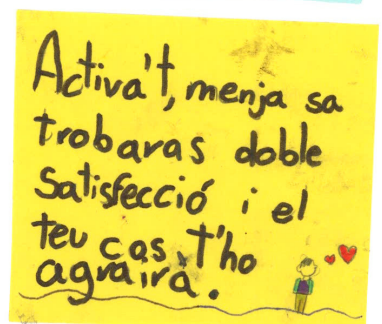 Activa't, menja sa
trobaras doble
satisfecció i el
teu cos t'ho
agrairà.